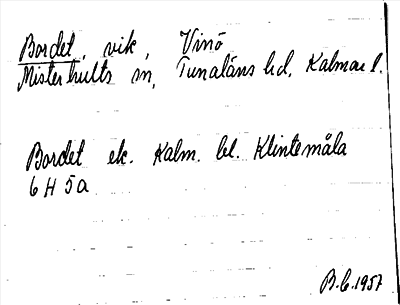 Bordet, vik, Vinö
Misterhults sn, Tunaläns hd, Kalmar l.
Bordet ek. Kalm. bl. Klintemåla
6 H 5a
B.C. 1957